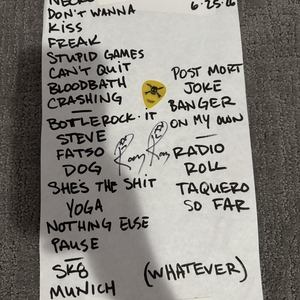 NECRO
6·25·26
DON'T WANNA
KISS
FREAK
STUPID GAMES
CAN'T QUIT
BLOODBATH
CRASHING
BOTTLEROCK·IT
STEVE
FATSO
DOG
SHE'S THE SHIT
YOGA
NOTHING ELSE
PAUSE
SK8
MUNICH
POST MORT
JOKE
BANGER
ON MY OWN
RADIO
ROLL
TAQUERO
SO FAR
(WHATEVER)